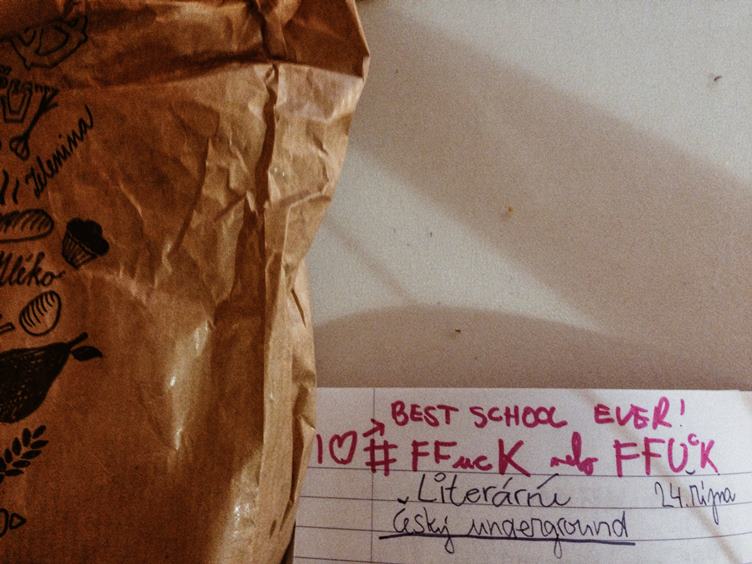 Zelenina
Mléko
BEST SCHOOL EVER!
I ♡ → # FFucK nebo FFÚcK
Literární
24. října
Český underground